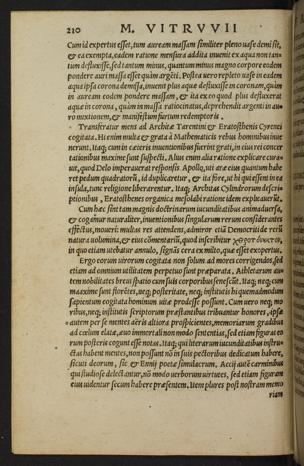 210 M. VITRVVII
Cum id expertus esset, tum auream massam similiter pleno vase demisit,
& ea exempta, eadem ratione mensura addita inuenit ex aqua non tan-
tum defluxisse, sed tantum minus, quantum minus magno corpore eodem
pondere auri massa esset quàm argẽti. Postea uero repleto uase in eadem
aqua ipsa corona demissa, inuenit plus aquæ defluxisse in coronam, quàm
in auream eodem pondere massam, & ita ex eo quod plus defluxerat
aquæ in corona, quàm in massa ratiocinatus, deprehendit argenti in au-
ro mixtionem, & manifestum furtum redemptoris.
Transferatur mens ad Archytæ Tarentini & Eratosthenis Cyrenei
cogitata. Hi enim multa & grata à Mathematicis rebus hominibus inue
nerunt. Itaq; cum in cæteris inuentionibus fuerint grati, in eius rei concer
tationibus maxime sunt suspecti. Alius enim alia ratione explicare cura-
uit, quod Delo imperauerat responsis Apollo, uti aræ eius quantum habe
ret pedum quadratorũ, id duplicaretur, & ita fore, ut hi qui essent in ea
insula, tunc religione liberarentur. Itaq; Architas Cylindrorum descri-
ptionibus, Eratosthenes organica mesolabi ratione idem explicauerũt.
Cum hæc sint tam magnis doctrinarum iucunditatibus animaduersa,
& cogamur naturaliter, inuentionibus singularum rerum considerantes
effectus, moueri: multas res attendens, admiror etiã Democriti de rerũ
natura uolumina, & eius cõmentariũ, quod inscribitur
in quo etiam utebatur annulo, signãs cera ex molto, quæ esset expertus.
Ergo eorum uirorum cogitata non solum ad mores corrigendos, sed
etiam ad omnium utilitatem perpetuo sunt præparata. Athletarum au-
tem nobilitates breui spatio cum suis corporibus senescũt. Itaq; neq; cum
maxime sunt florentes, neq; posteritate, neq; institutis hi quemadmodum
sapientum cogitata hominum uitæ prodesse possunt. Cum uero neq; mo
ribus, neq; institutis scriptorum præstantibus tribuantur honores, ipsæ
autem per se mentes aëris altiora prospicientes, memoriarum gradibus
ad cœlum elatæ, æuo immortali non modo sententias, sed etiam figuras eo
rum posteris cogunt esse notas. Itaq; qui literarum iucunditatibus instru-
ctas habent mentes, non possunt nõ in suis pectoribus dedicatum habere,
sicuti deorum, sic & Ennij poetæ simulacrum. Accij autẽ carminibus
qui studiose delectantur, nõ modo uerborum uirtutes, sed etiam figuram
eius uidentur secum habere præsentem. Item plures post nostram memo
riam